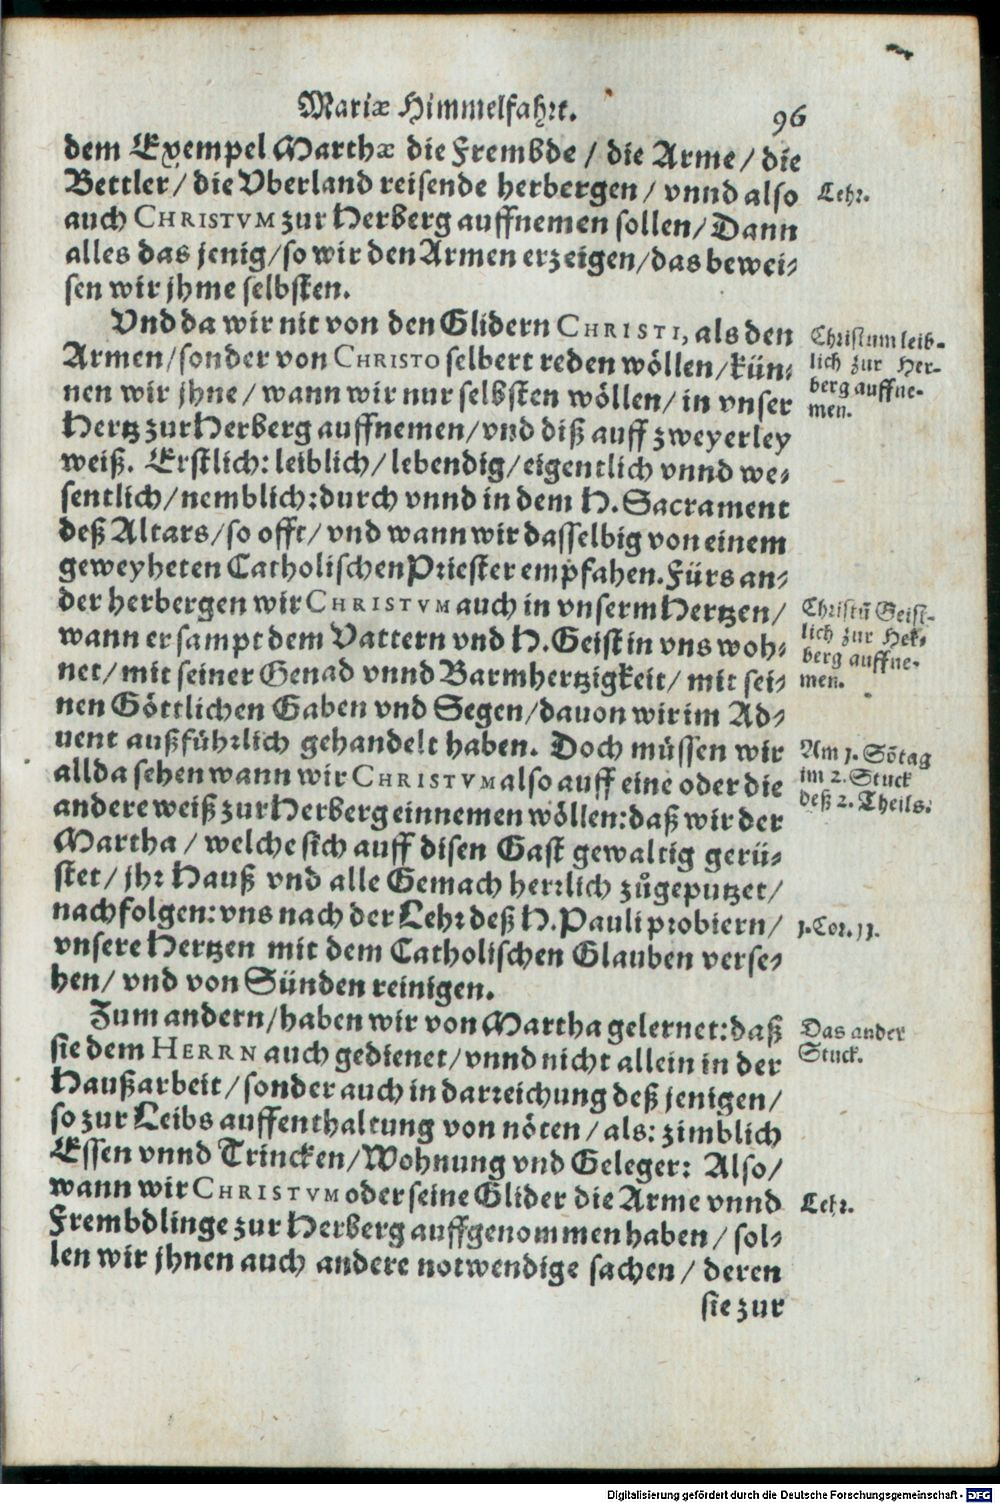 Mariæ Himmelfahrt.
96
dem Exempel Marthæ die Frembde / die Arme / die
Bettler / die Vberland reisende herbergen / vnnd also
Lehr.
auch CHRISTVM zur Herberg auffnemen sollen / Dann
alles das jenig / so wir den Armen erzeigen / das bewei-
sen wir jhme selbsten.
Vnd da wir nit von den Glidern CHRISTI, als den
Armen / sonder von CHRISTO selbert reden wöllen / kün-
nen wir jhne / wann wir nur selbsten wöllen / in vnser
Hertz zur Herberg auffnemen / vnd diß auff zweyerley
Christum leib-
lich zur Her-
berg auffne-
men.
weiß. Erstlich: leiblich / lebendig / eigentlich vnnd we-
sentlich / nemblich: durch vnnd in dem H. Sacrament
deß Altars / so offt / vnd wann wir dasselbig von einem
geweyheten Catholischen Priester empfahen. Fürs an-
der herbergen wir CHRISTVM auch in vnserm Hertzen /
wann er sampt dem Vattern vnd H. Geist in vns woh-
net / mit seiner Genad vnnd Barmhertzigkeit / mit sei-
Christū Geist-
lich zur Her-
berg auffne-
men.
nen Göttlichen Gaben vnd Segen / dauon wir im Ad-
uent außführlich gehandelt haben. Doch müssen wir
allda sehen wann wir CHRISTVM also auff eine oder die
andere weiß zur Herberg einnemen wöllen: daß wir der
Am 1. Sōtag
im 2. Stuck
deß 2. Theils.
Martha / welche sich auff disen Gast gewaltig gerü-
stet / jhr Hauß vnd alle Gemach herrlich zůgeputzet /
nachfolgen: vns nach der Lehr deß H. Pauli probiern /
1. Cor. 11.
vnsere Hertzen mit dem Catholischen Glauben verse-
hen / vnd von Sünden reinigen.
Zum andern / haben wir von Martha gelernet: daß
sie dem HERRN auch gedienet / vnnd nicht allein in der
Das ander
Stuck.
Haußarbeit / sonder auch in darreichung deß jenigen /
so zur Leibs auffenthaltung von nöten / als: zimblich
Essen vnnd Trincken / Wohnung vnd Geleger: Also /
wann wir CHRISTVM oder seine Glider die Arme vnnd
Lehr.
Frembdlinge zur Herberg auffgenommen haben / sol-
len wir jhnen auch andere notwendige sachen / deren
sie zur
Digitalisierung gefördert durch die Deutsche Forschungsgemeinschaft - DFG